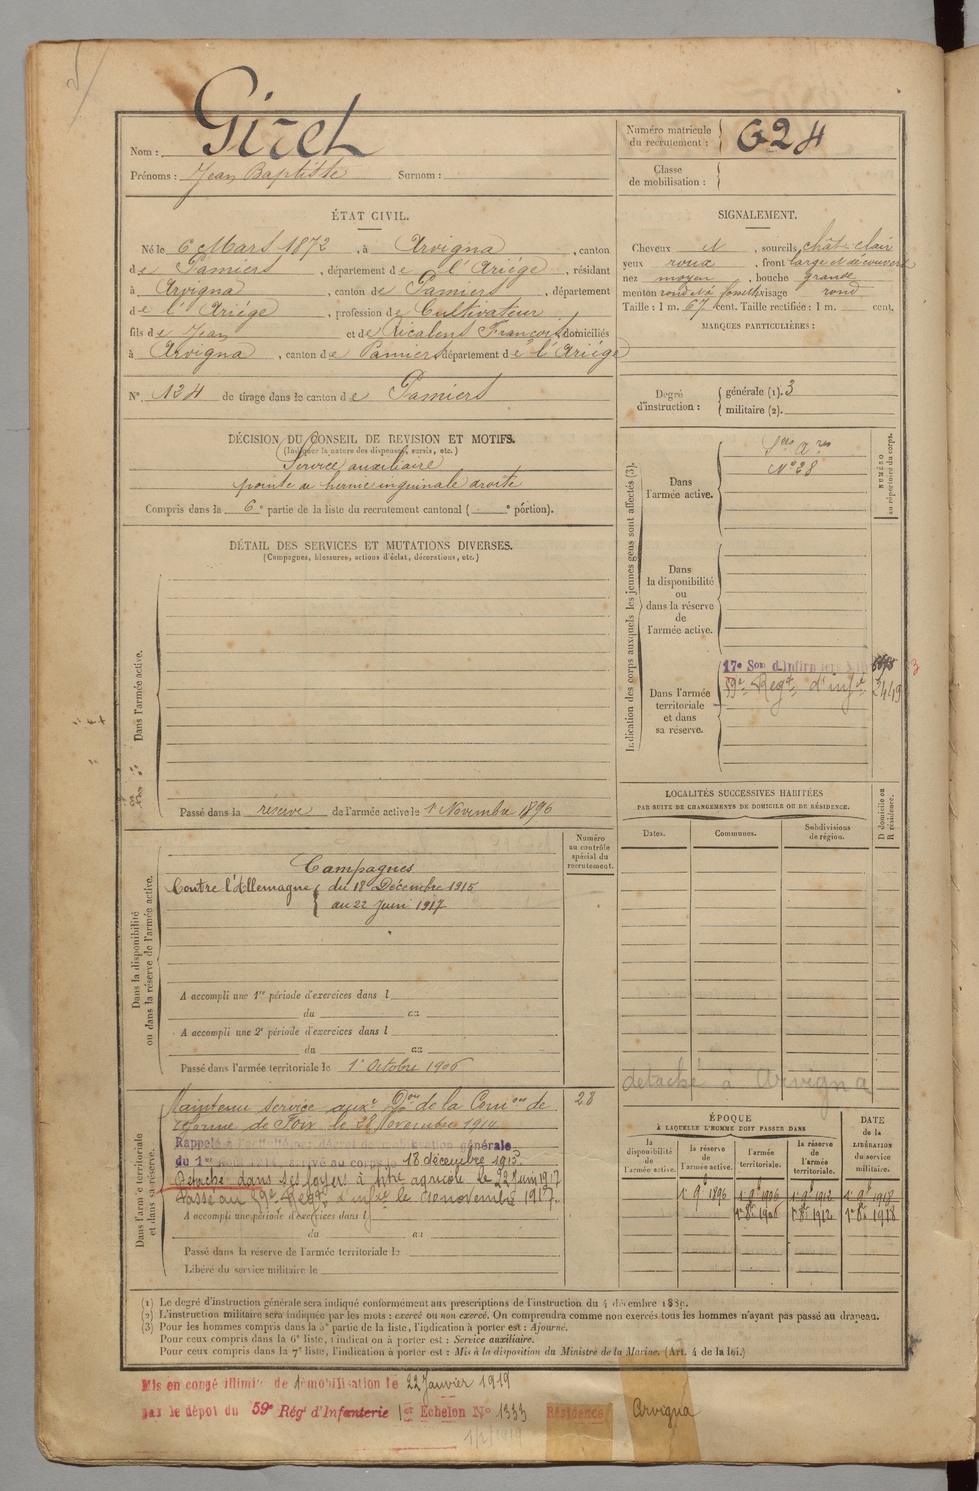 Nom : Giret
Prénoms : Jean Baptiste Surnom :
Numéro matricule du recrutement : 624
Classe de mobilisation :
ÉTAT CIVIL.
Né le 6 Mars 1872, à Arvigna, canton
de Pamiers, département de l'Ariège, résidant
à Arvigna, canton de Pamiers, département
de l'Ariège, profession de Cultivateur
fils de Jean et de Ricalens Francoise domiciliés
à Arvigna, canton de Pamiers département de l'Ariège
N° 124 de tirage dans le canton de Pamiers
SIGNALEMENT.
Cheveux et, sourcils chât. clair
yeux roux, front large et découvert
nez moyen, bouche grande
menton rond et à fossette visage rond
Taille : 1 m. 67 cent. Taille rectifiée : 1 m. cent.
MARQUES PARTICULIÈRES :
Degré d'instruction : générale (1). 3
militaire (2).
DÉCISION DU CONSEIL DE REVISION ET MOTIFS.
(Indiquer la nature des dispenses, sursis, etc.)
Service auxiliaire
pointe de hernie inguinale droite
Compris dans la 6e partie de la liste du recrutement cantonal ( e portion).
DÉTAIL DES SERVICES ET MUTATIONS DIVERSES.
(Campagnes, blessures, actions d'éclat, décorations, etc.)
Dans l'armée active.
Passé dans la réserve de l'armée active le 1er Novembre 1896
Indication des corps auxquels les jeunes gens sont affectés (3).
NUMÉRO au répertoire du corps.
Dans l'armée active.
N° 28
Dans la disponibilité ou dans la réserve de l'armée active.
Dans l'armée territoriale et dans sa réserve.
17e Son d'Infirmiers
59e Regt d'infie 2449
LOCALITÉS SUCCESSIVES HABITÉES
PAR SUITE DE CHANGEMENTS DE DOMICILE OU DE RÉSIDENCE.
D domicile ou R résidence.
Dates. Communes. Subdivisions de région.
détaché à Arvigna
Numéro au contrôle spécial du recrutement.
Dans la disponibilité ou dans la réserve de l'armée active.
Campagnes
Contre l'Allemagne du 18 Décembre 1915
au 22 Juin 1917
A accompli une 1re période d'exercices dans l
du au
A accompli une 2e période d'exercices dans l
du au
Passé dans l'armée territoriale le 1er Octobre 1906
Dans l'armée territoriale et dans sa réserve.
Maintenu service auxre Don de la Comon de 28
réforme de Foix le 28 Novembre 1914
Rappelé à l'activité par décret de mobilisation générale
du 1er Août 1914, arrivé au corps le 18 décembre 1915
Détaché dans ses foyers à titre agricole le 22 Juin 1917
Passé au 59e Regt d'infie le 10 novembre 1917.
A accompli une période d'exercices dans l
du au
Passé dans la réserve de l'armée territoriale le
Libéré du service militaire le
ÉPOQUE
A LAQUELLE L'HOMME DOIT PASSER DANS
DATE de la LIBÉRATION du service militaire.
la disponibilité de l'armée active. la réserve de l'armée active. l'armée territoriale. la réserve de l'armée territoriale.
1er 9b 1896 1er 9b 1906 1er 9b 1912 1er 9b 1918
1er 8bre 1906 1er 8bre 1912 1er 8bre 1918
(1) Le degré d'instruction générale sera indiqué conformément aux prescriptions de l'instruction du 4 décembre 1889.
(2) L'instruction militaire sera indiquée par les mots : exercé ou non exercé. On comprendra comme non exercés tous les hommes n'ayant pas passé au drapeau.
(3) Pour les hommes compris dans la 5e partie de la liste, l'indication à porter est : Ajourné.
Pour ceux compris dans la 6e liste, l'indication à porter est : Service auxiliaire.
Pour ceux compris dans la 7e liste, l'indication à porter est : Mis à la disposition du Ministre de la Marine. (Art. 4 de la loi.)
Mis en congé illimité de démobilisation le 22 Janvier 1919
par le dépôt du 59e Régt d'Infanterie 1er Echelon N° 1333 Résidence Arvigna